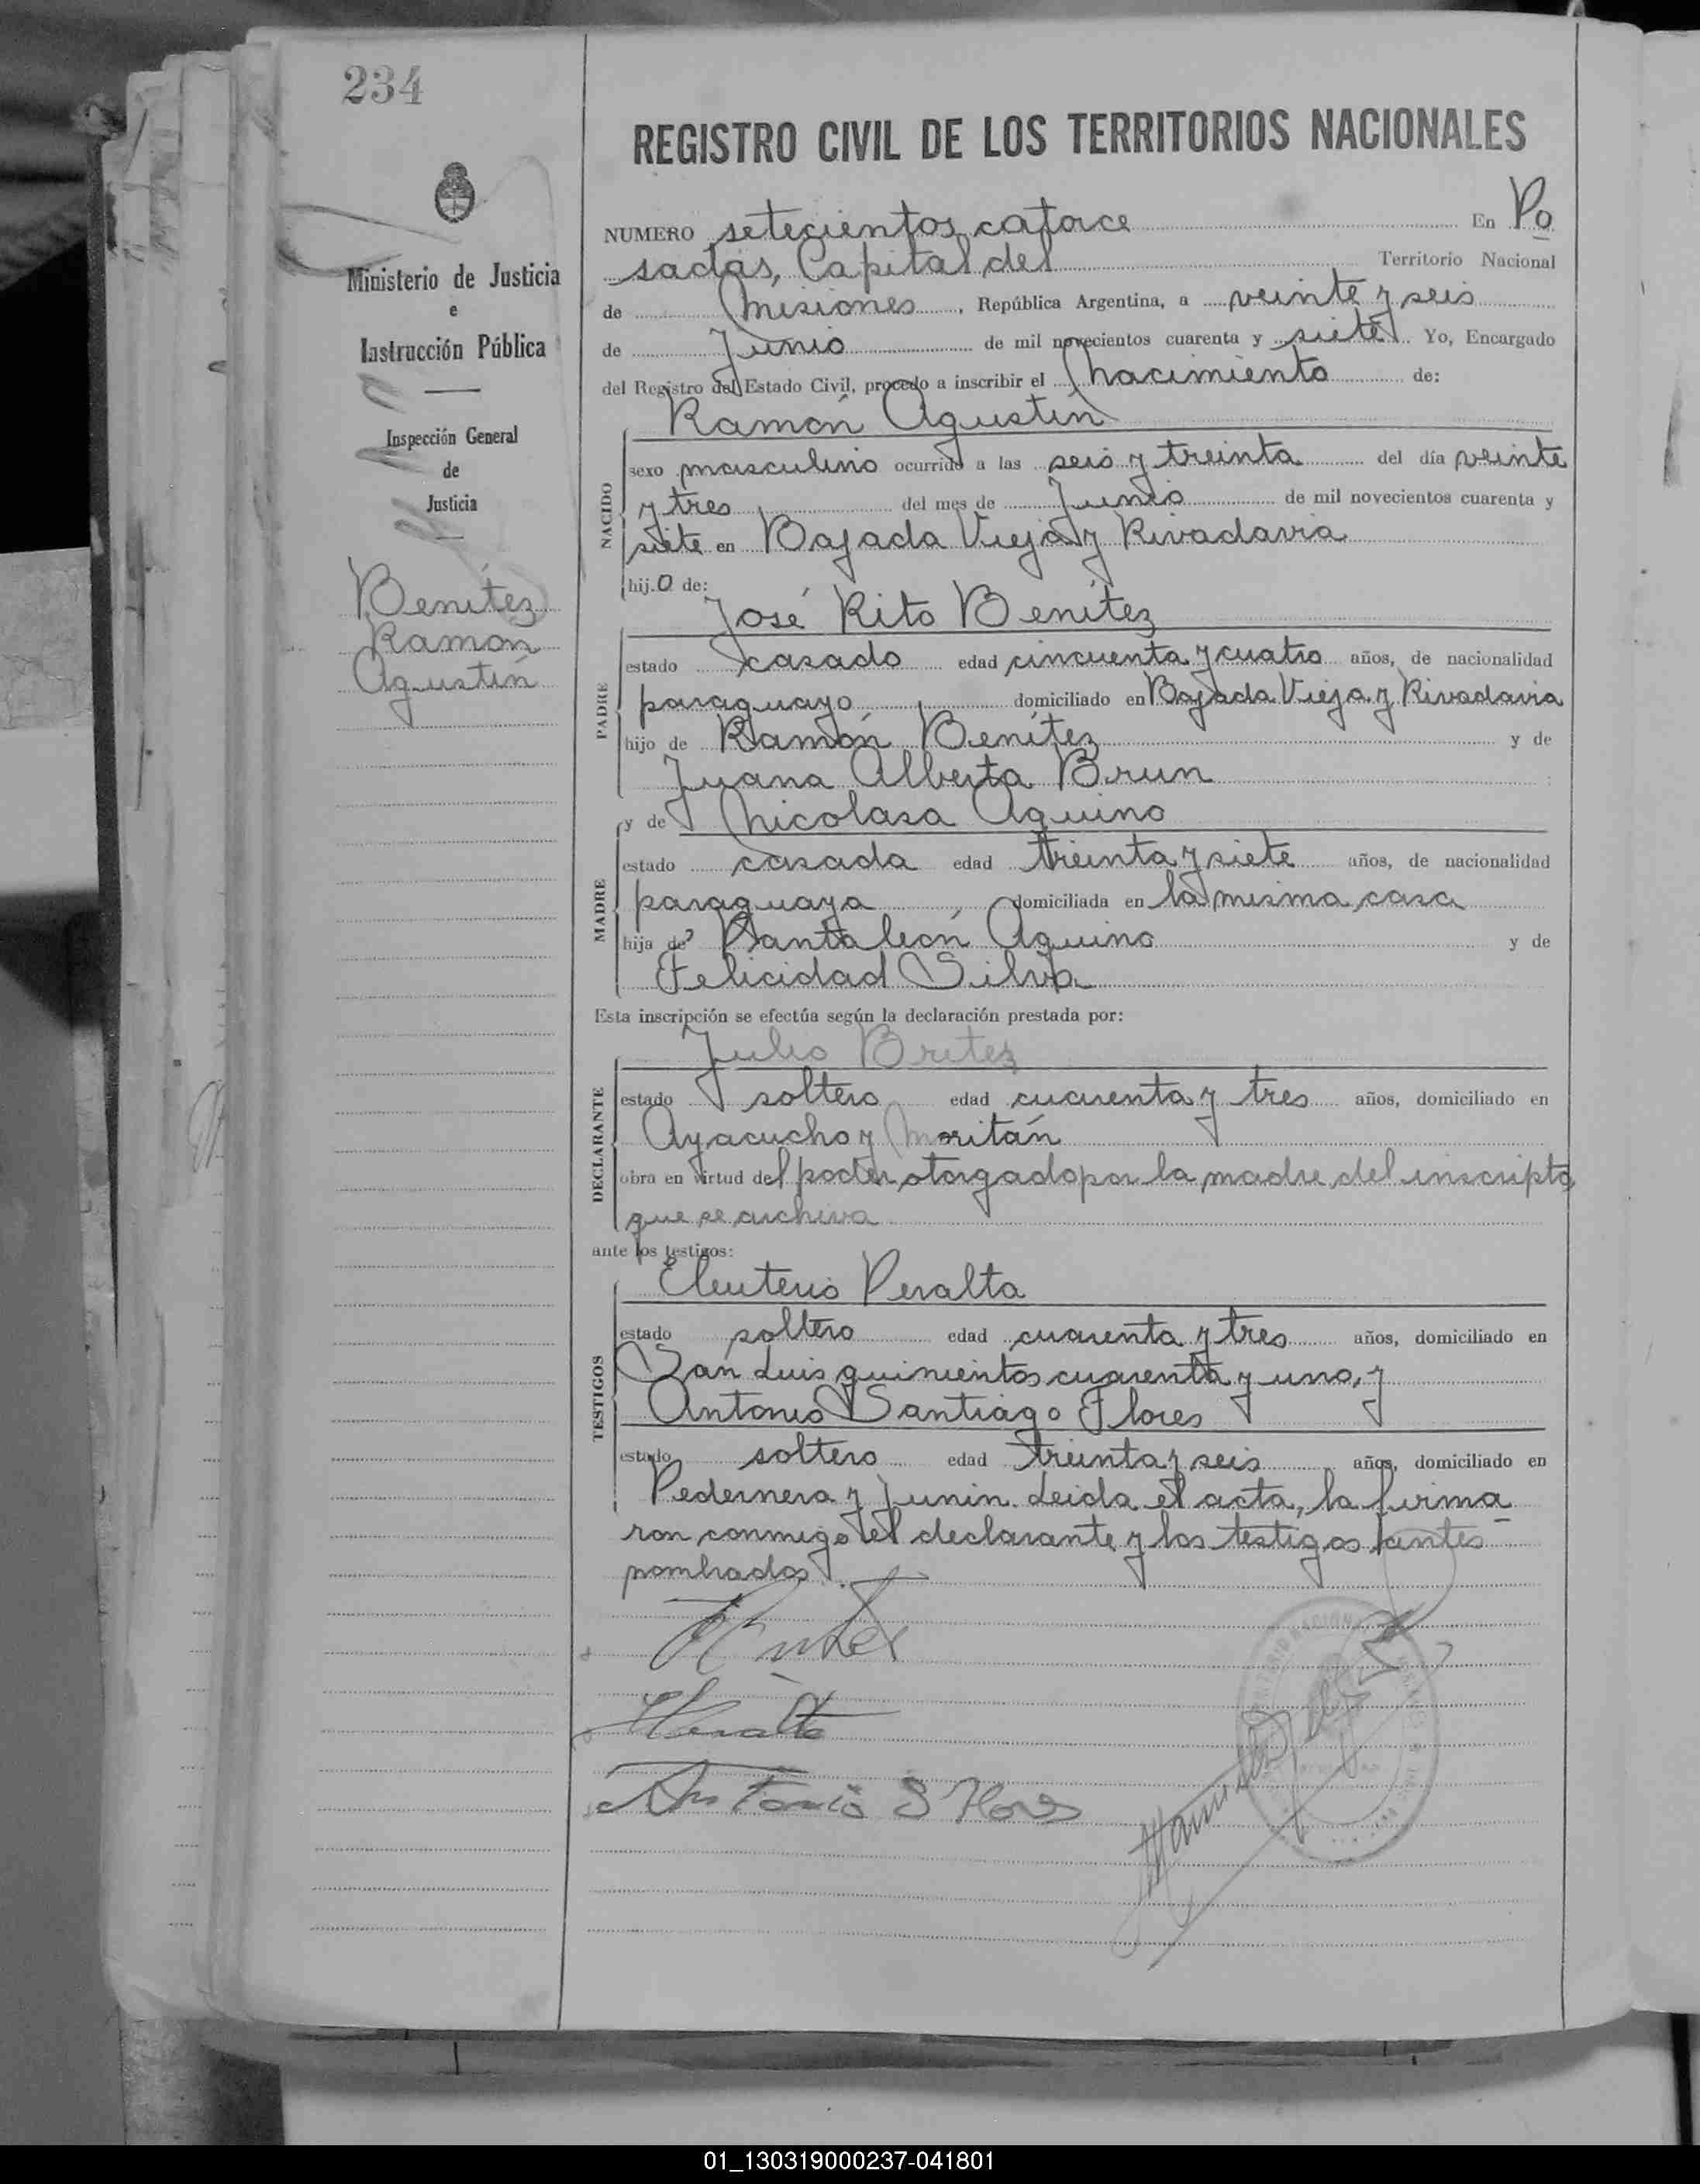 234
Ministerio de Justicia
e
Instrucción Pública
Inspección General
de
Justicia
Benítez
Ramón
Agustín
REGISTRO CIVIL DE LOS TERRITORIOS NACIONALES
NUMERO setecientos catorce En Po
sadas, Capital del Territorio Nacional
de Misiones, República Argentina, a veinte y seis
de Junio de mil novecientos cuarenta y siete Yo, Encargado
del Registro del Estado Civil, procedo a inscribir el Nacimiento de:
Ramón Agustín
NACIDO
sexo masculino ocurrido a las seis y treinta del día veinte
y tres del mes de Junio de mil novecientos cuarenta y
siete en Bajada Vieja y Rivadavia
hijo de:
José Rito Benítez
PADRE
estado casado edad cincuenta y cuatro años, de nacionalidad
paraguayo domiciliado en Bajada Vieja y Rivadavia
hijo de Ramón Benítez y de
Juana Alberta Brun
y de Nicolasa Aquino
MADRE
estado casada edad treinta y siete años, de nacionalidad
paraguaya domiciliada en la misma casa
hija de Pantaleón Aquino y de
Felicidad Silva
Esta inscripción se efectúa según la declaración prestada por:
Julio Britez
DECLARANTE
estado soltero edad cuarenta y tres años, domiciliado en
Ayacucho y Moritán
obra en virtud del poder otorgado por la madre del inscripto,
que se archiva
ante los testigos:
Eleuterio Peralta
TESTIGOS
estado soltero edad cuarenta y tres años, domiciliado en
San Luis quinientos cuarenta y uno, y
Antonio Santiago Flores
estado soltero edad treinta y seis años, domiciliado en
Pedernera y Junin. Leida el acta, la firma
ron conmigo el declarante y los testigos antes
nombrados.
Antonio S Flores
01_130319000237-041801